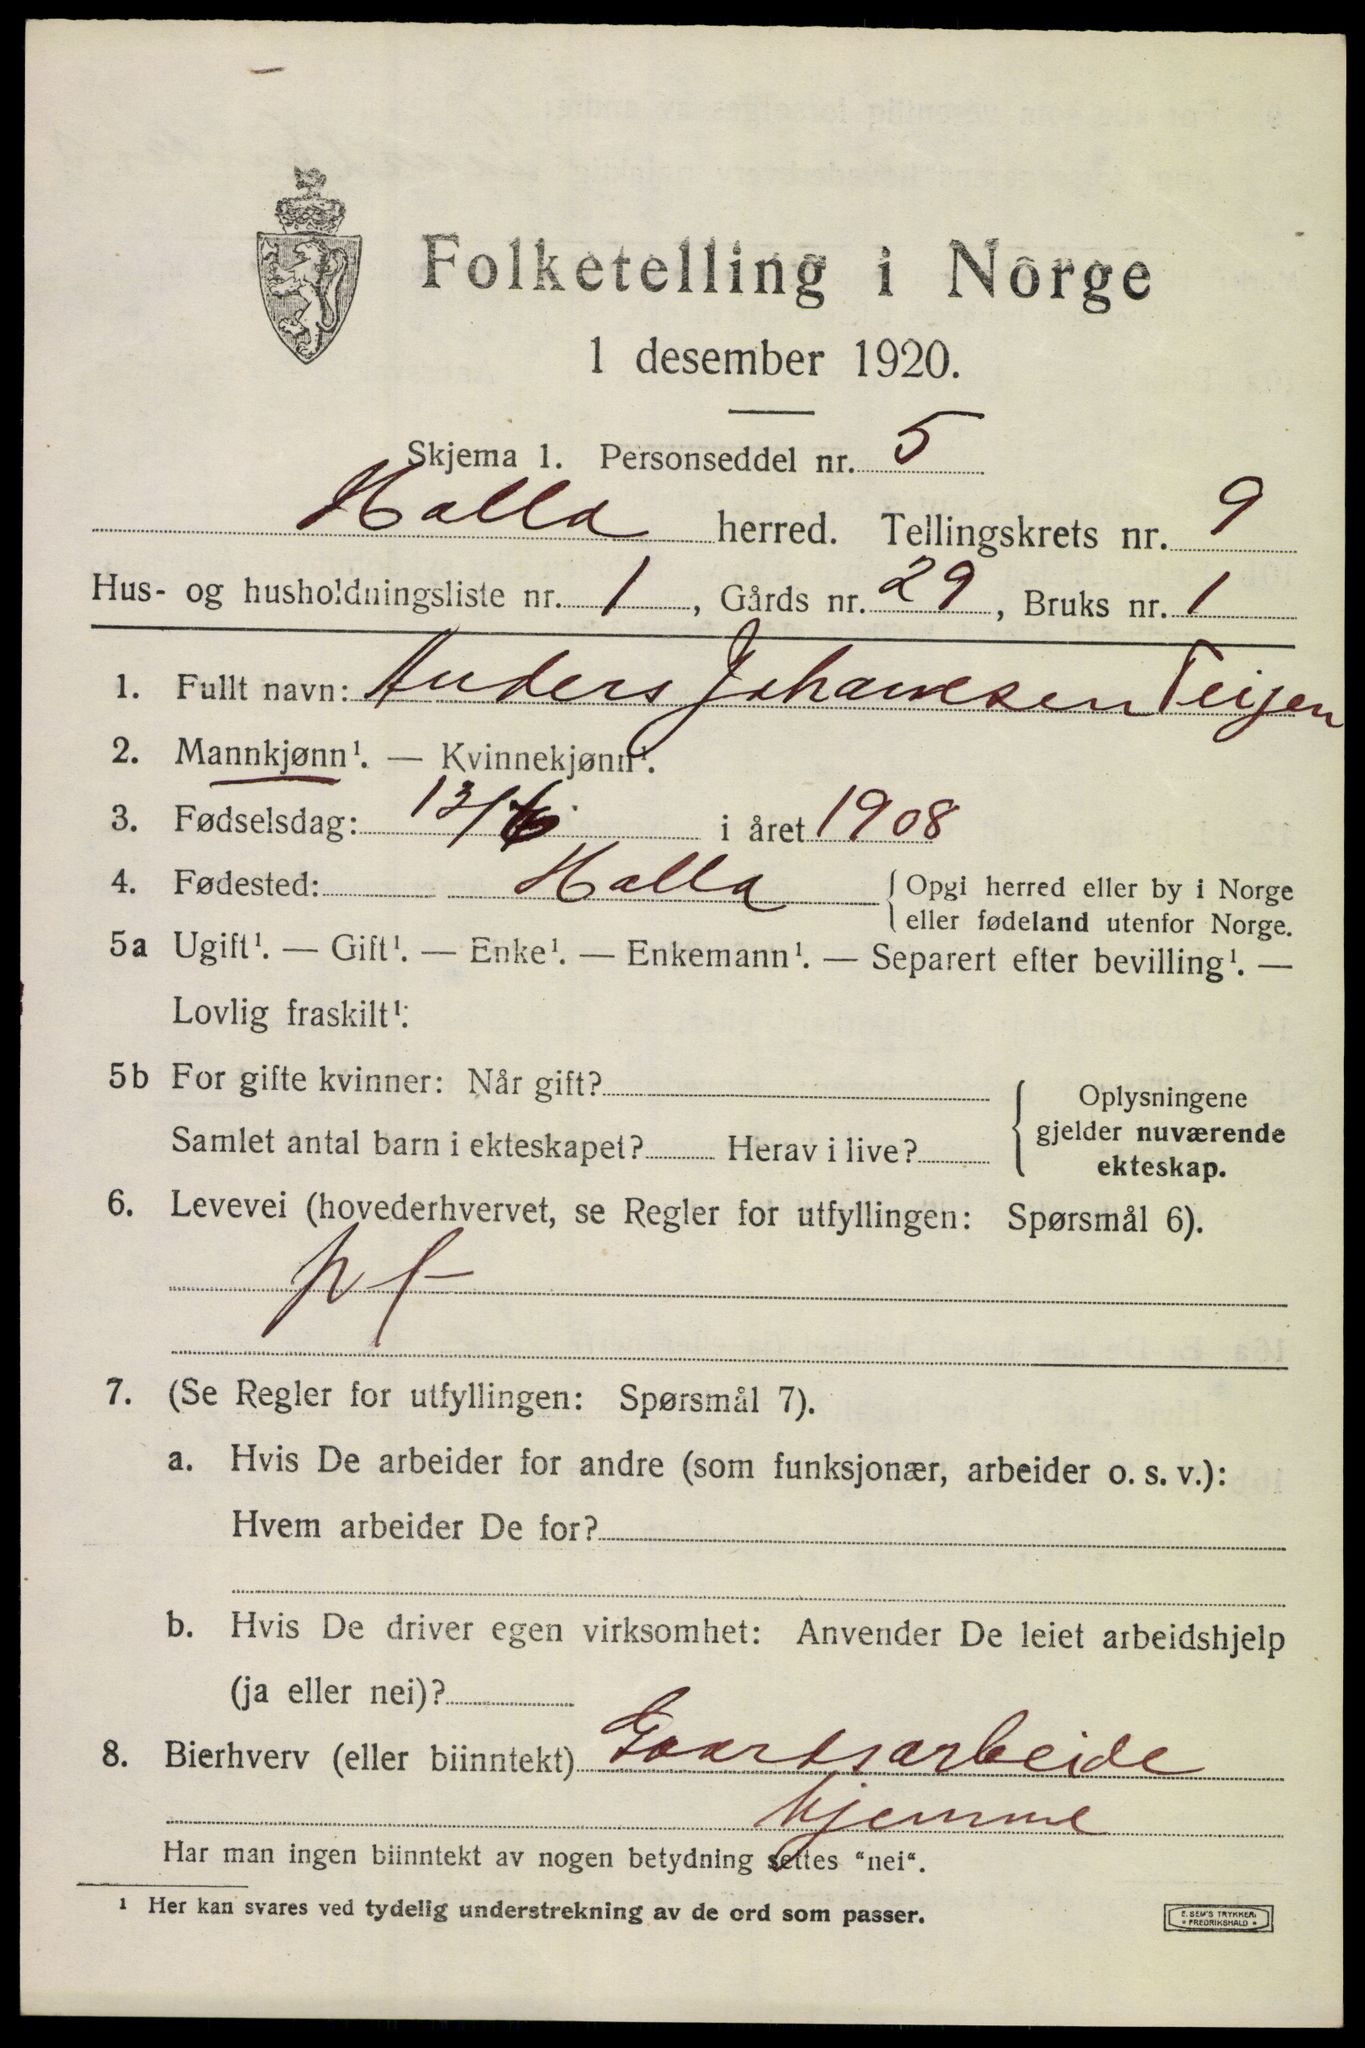 Folketelling i Norge
1 desember 1920.
Skjema 1. Personseddel nr. 5
Holla herred. Tellingskrets nr. 9
Hus- og husholdningsliste nr. 1, Gårds nr. 29, Bruks nr. 1
1. Fullt navn: Anders Johannesen Teijen
2. Mannkjønn¹. — Kvinnekjønn¹.
3. Fødselsdag: 13/6 i året 1908
4. Fødested: Holla { Opgi herred eller by i Norge
eller fødeland utenfor Norge.
5a Ugift¹. — Gift¹. — Enke¹. — Enkemann¹. — Separert efter bevilling¹. —
Lovlig fraskilt¹.
5b For gifte kvinner: Når gift?
Samlet antal barn i ekteskapet? Herav i live?
Oplysningene
gjelder nuværende
ekteskap.
6. Levevei (hovederhvervet, se Regler for utfyllingen: Spørsmål 6).
7. (Se Regler for utfyllingen: Spørsmål 7).
a. Hvis De arbeider for andre (som funksjonær, arbeider o. s. v.):
Hvem arbeider De for?
b. Hvis De driver egen virksomhet: Anvender De leiet arbeidshjelp
(ja eller nei)?
8. Bierhverv (eller biinntekt) Gaardsarbeide
hjemme
Har man ingen biinntekt av nogen betydning settes “nei“.
¹ Her kan svares ved tydelig understrekning av de ord som passer.
E. SEM'S TRYKKERI
* FREDRIKSHALD *